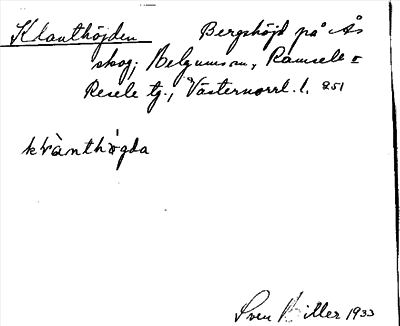 Klanthöjden Bergshöjd på Ås
skog, Helgums sn, Ramsele o
Resele tg., Västernorrl. l. 251
klànthø̀gda
Sven Hiller 1933